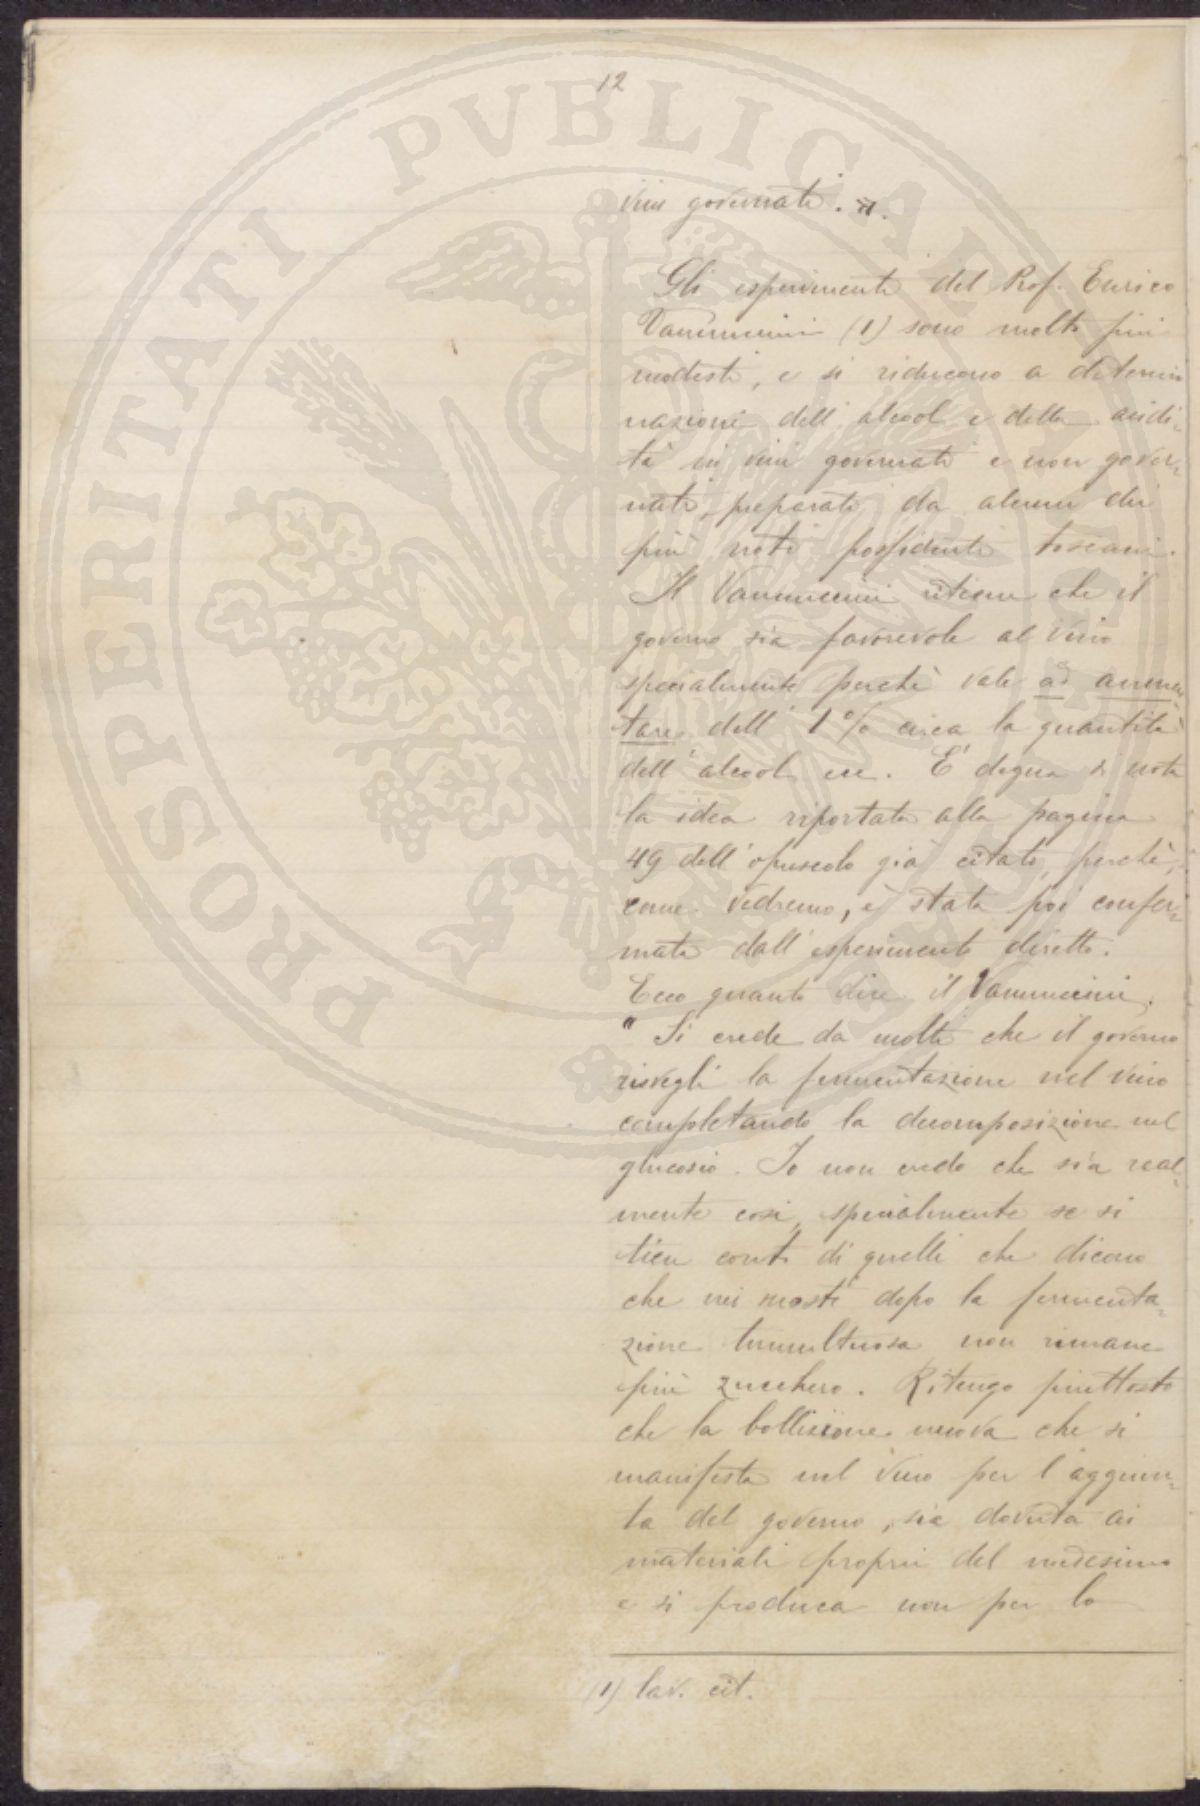 12
vini governati. ".
Gli esperimenti del Prof. Enrico
Vannuccini (1) sono molto più
modesti, e si riducono a determi
nazioni dell'alcool e della acidi-
tà in vini governati e non gover-
nati, preparati da alcuni dei
più noti possidenti toscani.
Il Vannuccini ritiene che il
governo sia favorevole al vino
specialmente perchè vale ad aumen
tare dell' 1% circa la quantità
dell'alcool ecc. È degna di nota
la idea riportata alla pagina
49 dell'opuscolo già citato, perchè,
come vedremo, è stata poi confer-
mata dall'esperimento diretto.
Ecco quanto dice il Vannuccini.
" Si crede da molti che il governo
risvegli la fermentazione nel vino
completando la decomposizione nel
glucosio. Io non credo che sia real-
mente così, specialmente se si
tien conto di quelli che dicono
che nei mosti dopo la fermenta-
zione tumultuosa non rimane
più zucchero. Ritengo piuttosto
che la bollizione nuova che si
manifesta nel vino per l'aggiun-
ta del governo, sia dovuta ai
materiali proprii del medesimo
e si produca non per lo
(1) lav. cit.
PROSPERITATI PVBLICAE AVGENDAE